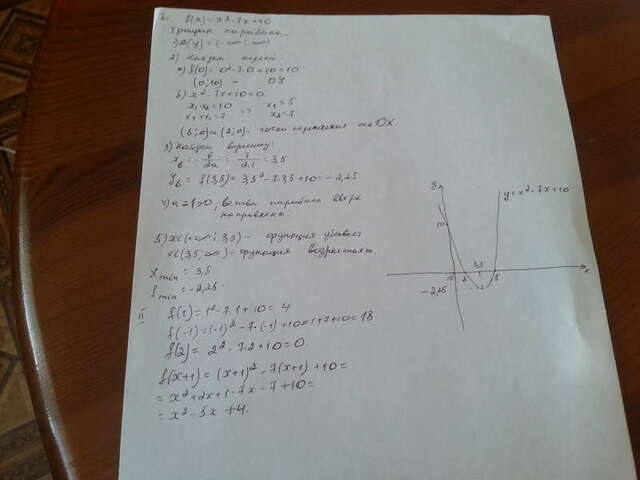 2. f(x) = x² - 7x + 10
График парабола.
1) D(y) = (-∞; ∞)
2) Найдем нули:
а) f(0) = 0² - 7·0 + 10 = 10
(0; 10) - OY
б) x² - 7x + 10 = 0
x₁·x₂ = 10 x₁ = 5
x₁ + x₂ = 7 => x₂ = 7
(5; 0) и (2; 0) - точки пересечения ось OX.
3) Найдем вершину:
xв = -b/2a = 7/2·1 = 3,5
yв = f(3,5) = 3,5² - 7·3,5 + 10 = -2,25
4) a = 1 > 0, ветви парабола вверх
направлены.
5) x∈(-∞; 3,5) - функция убывает
x∈(3,5; ∞) - функция возрастает
xmin = 3,5
fmin = -2,25.
II f(1) = 1² - 7·1 + 10 = 4
f(-1) = (-1)² - 7·(-1) + 10 = 1 + 7 + 10 = 18
f(2) = 2² - 7·2 + 10 = 0.
f(x+1) = (x+1)² - 7(x+1) + 10 =
= x² + 2x + 1 - 7x - 7 + 10 =
= x² - 5x + 4.
y
y = x² - 7x + 10
10
3,5
0 2 5 x
-2,25